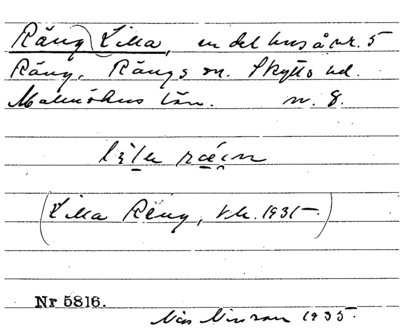 Räng (Lilla, en del hus å nr. 5
Räng, Rängs sn. Skytts hd.
Malmöhus län. n. 8.
lìlɐ
(Lilla Räng, kk. 1931-)
Nr 5816.
1935.